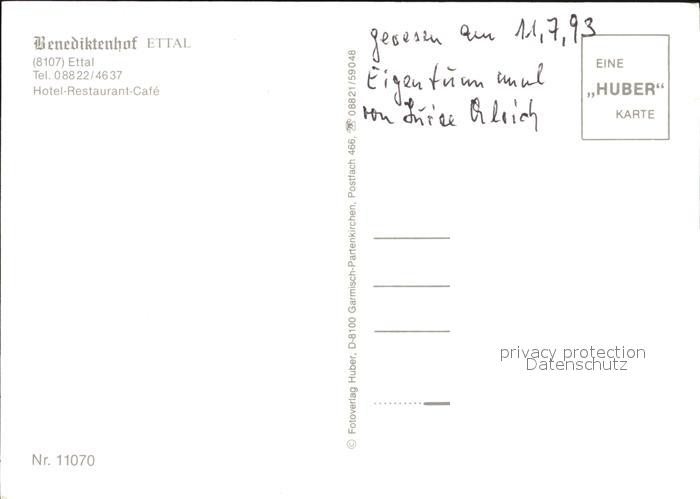 Benediktenhof ETTAL
(8107) Ettal
Tel. 08822/4637
Hotel-Restaurant-Café
gewesen am 11,7,93
Eigentum
von Luise
EINE
„HUBER“
KARTE
© Fotoverlag Huber, D-8100 Garmisch-Partenkirchen, Postfach 466, ☎ 08821/59048
privacy protection
Datenschutz
Nr. 11070